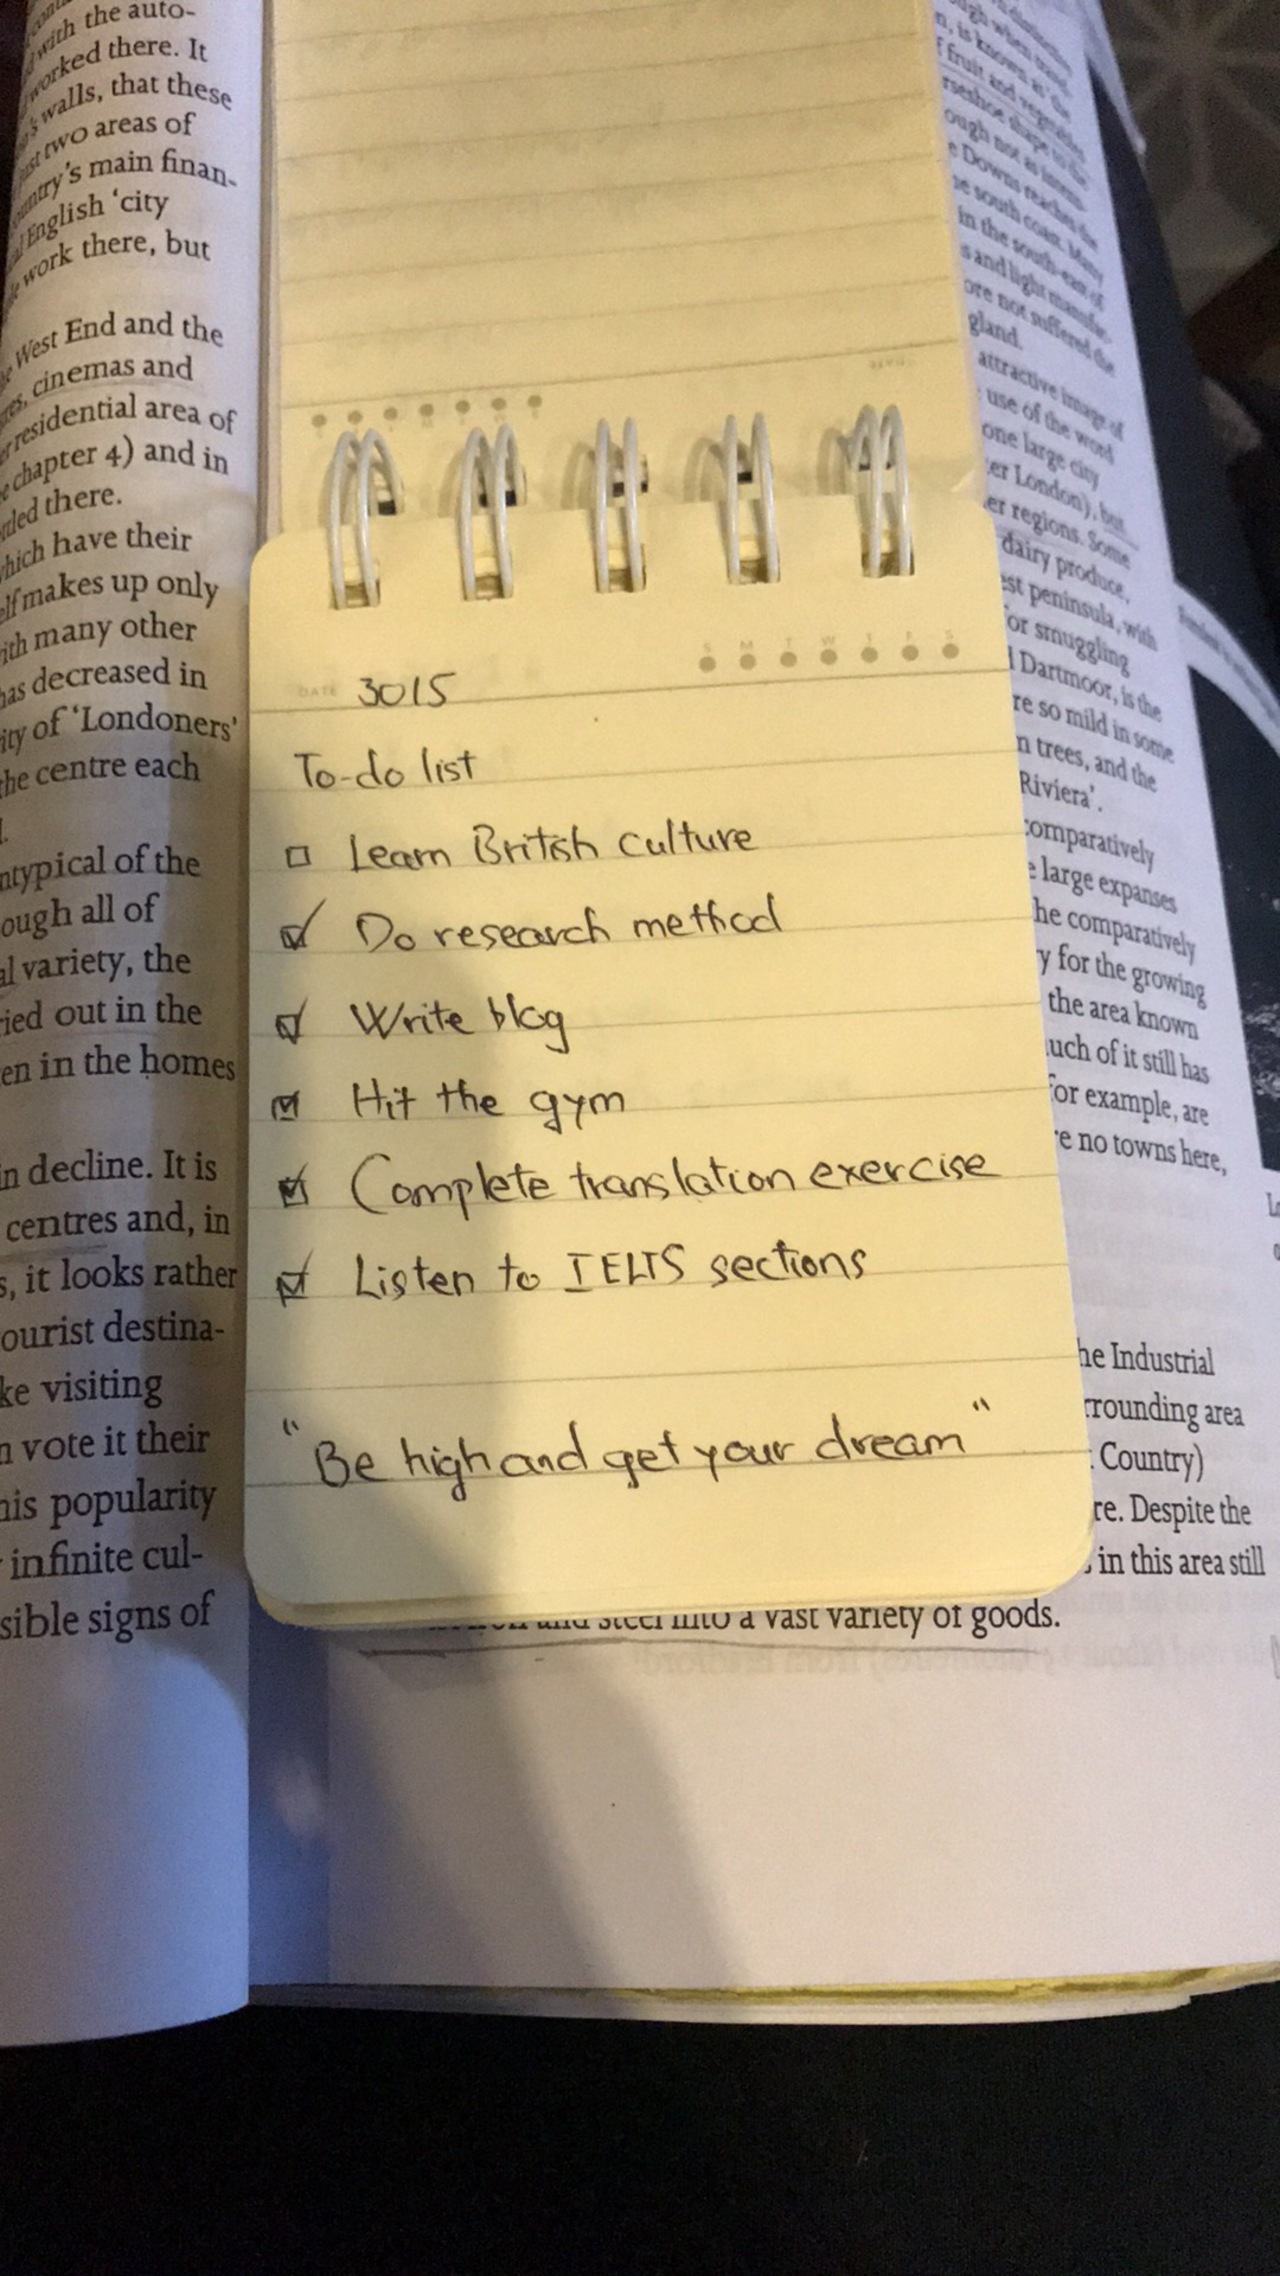 with the auto-
worked there. It
walls, that these
two areas of
country's main finan-
English 'city
work there, but
West End and the
cinemas and
residential area of
chapter 4) and in
there.
which have their
makes up only
with many other
has decreased in
of 'Londoners'
the centre each
of the
ough all of
variety, the
ried out in the
en in the homes
in decline. It is
centres and, in
s, it looks rather
ourist destina-
ke visiting
vote it their
his popularity
infinite cul-
sible signs of
S M T W T F S
DATE 3015
To-do list
Learn British culture
Do research method
Write blog
Hit the gym
Complete translation exercise
Listen to IELTS sections
"Be high and get your dream"
fruit and vegetables
Downs reaches the
the south coast. Many
in the south-east of
and light manufac-
ore not suffered the
gland.
attractive image of
use of the word
one large city
er London), but
er regions. Some
dairy produce,
est peninsula, with
for smuggling
Dartmoor, is the
re so mild in some
trees, and the
Riviera'.
comparatively
large expanses
he comparatively
y for the growing
the area known
uch of it still has
for example, are
re no towns here,
he Industrial
rrounding area
Country)
re. Despite the
in this area still
and steel into a vast variety of goods.